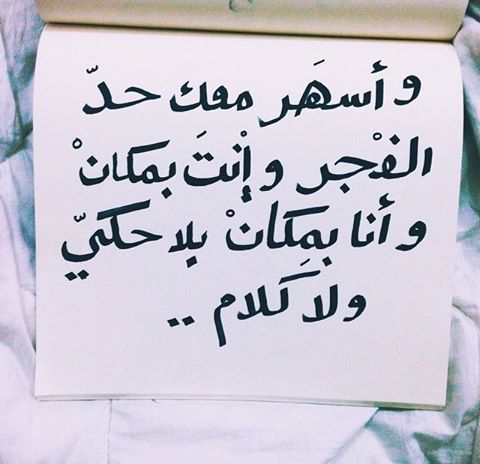 و أسهَر معك حدّ
الفْجر و إنْتَ بمكانْ
و أنا بمِكانْ بلا حكيّ
ولا كَلام ..